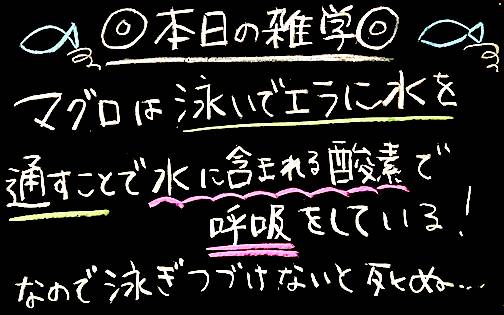 ◎本日の雑学◎
マグロは泳いでエラに水を
通すことで水に含まれる酸素で
呼吸をしている!
なので泳ぎつづけないと死ぬ…